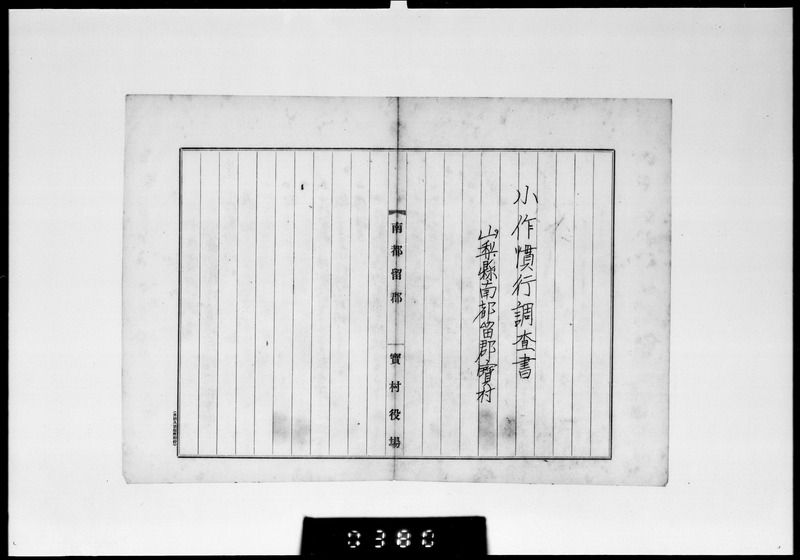 小作慣行調査書
山梨縣南都留郡寶村
南都留郡 寶村役場
0380